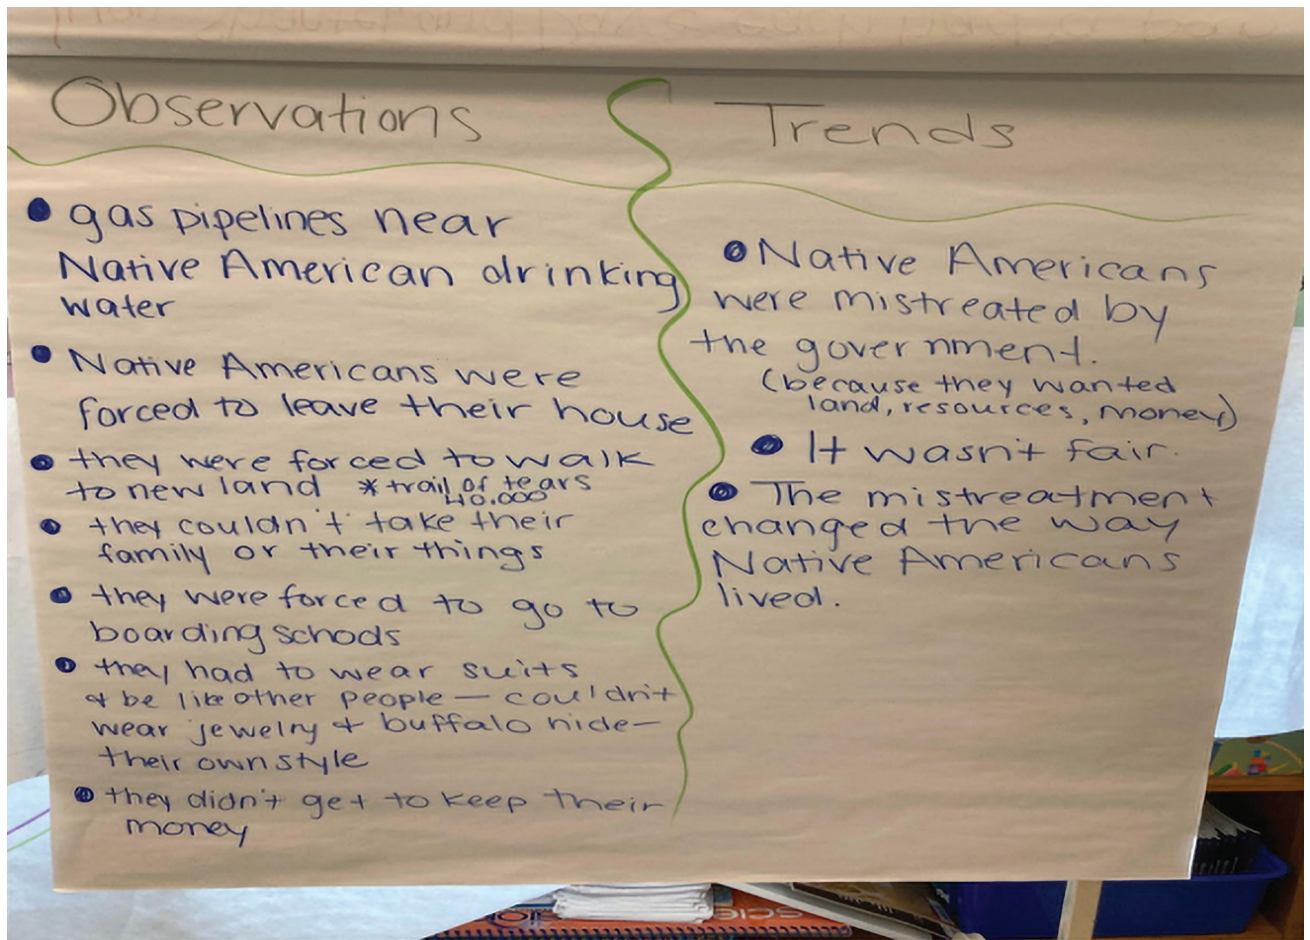 Observations
gas pipelines near
Native American drinking
water
Native Americans were
forced to leave their house
they were forced to walk
to new land *trail of tears
40,000
they couldn't take their
family or their things
they were forced to go to
boarding schools
they had to wear suits
& be like other people — couldn't
wear jewelry & buffalo hide —
their own style
they didn't get to keep their
money
Trends
Native Americans
were mistreated by
the government.
(because they wanted
land, resources, money)
It wasn't fair.
The mistreatment
changed the way
Native Americans
lived.